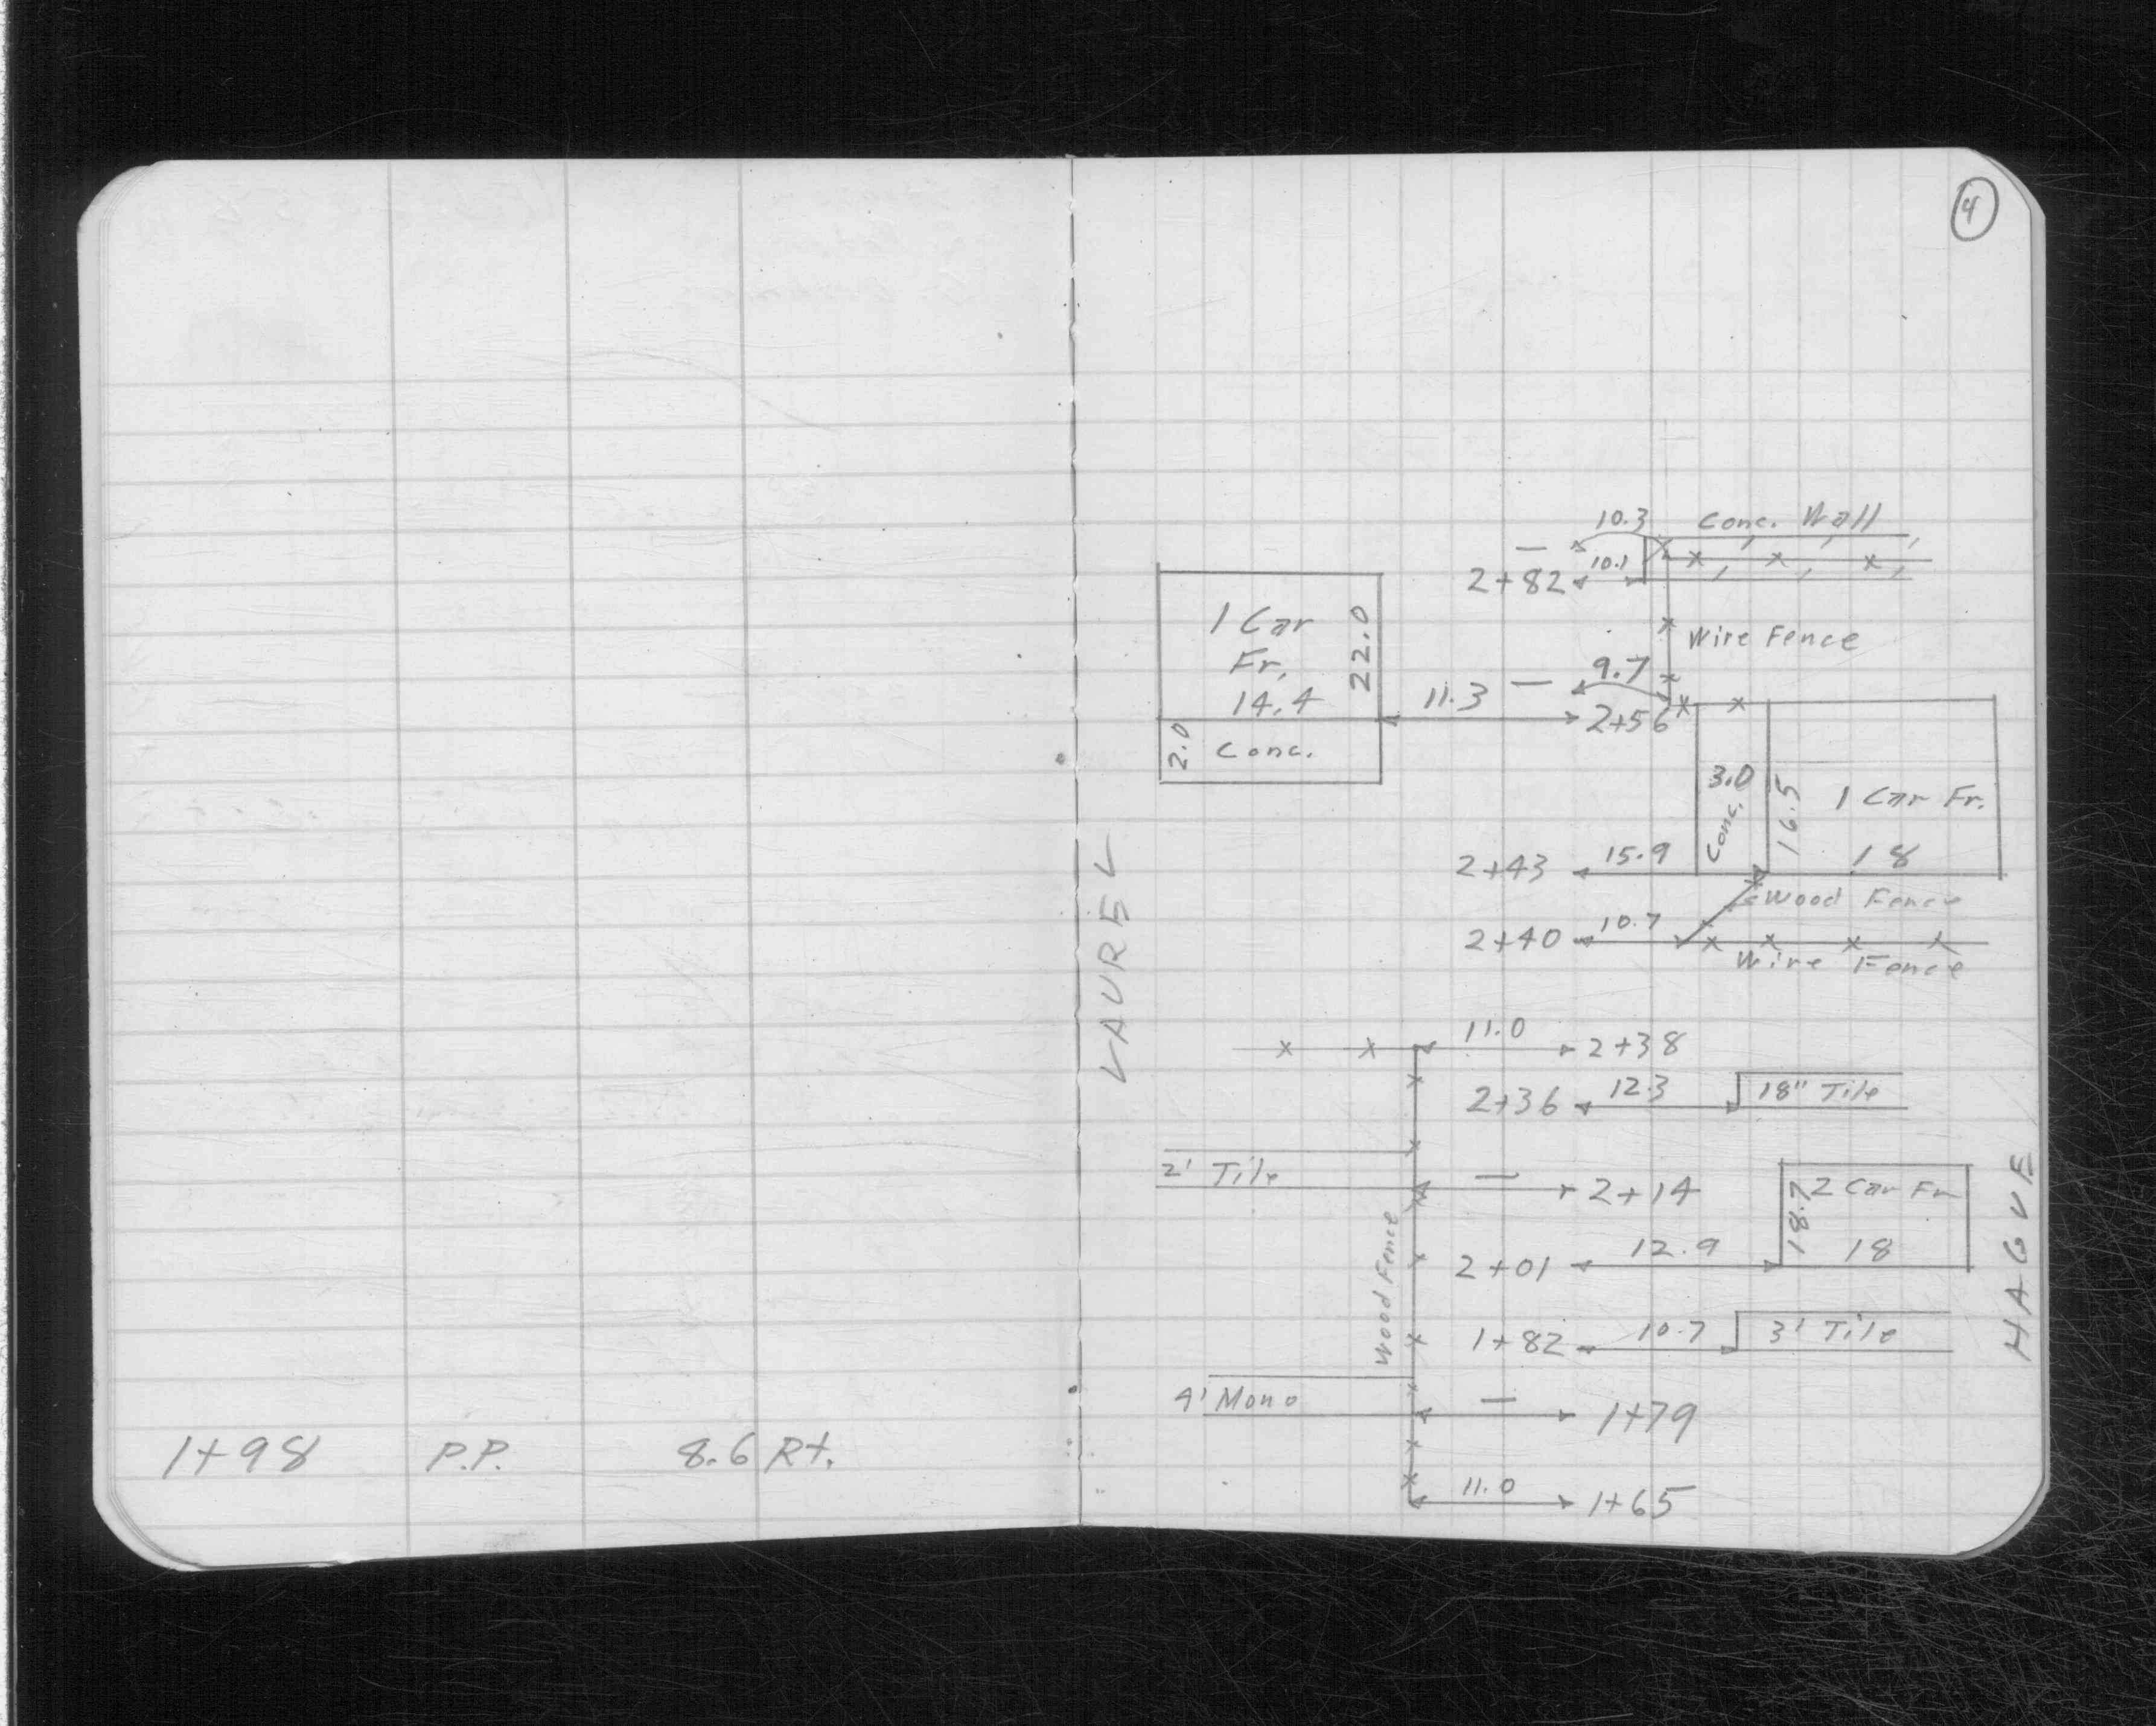 1+98 P.P. 8.6 Rt.
4
10.3 Conc. Wall
2+82 10.1
1 Car
Fr.
14.4
22.0
Wire Fence
9.7
11.3 2+56
2.0 Conc.
3.0
Conc.
16.5
1 Car Fr.
18
2+43 15.9
Wood Fence
2+40 10.7
Wire Fence
LAUREL
11.0 2+38
2+36 12.3 18" Tile
2' Tile
2+14
18.7
2 Car Fr
18
2+01 12.9
HAGUE
Wood Fence
1+82 10.7 3' Tile
4' Mono
1+79
11.0 1+65